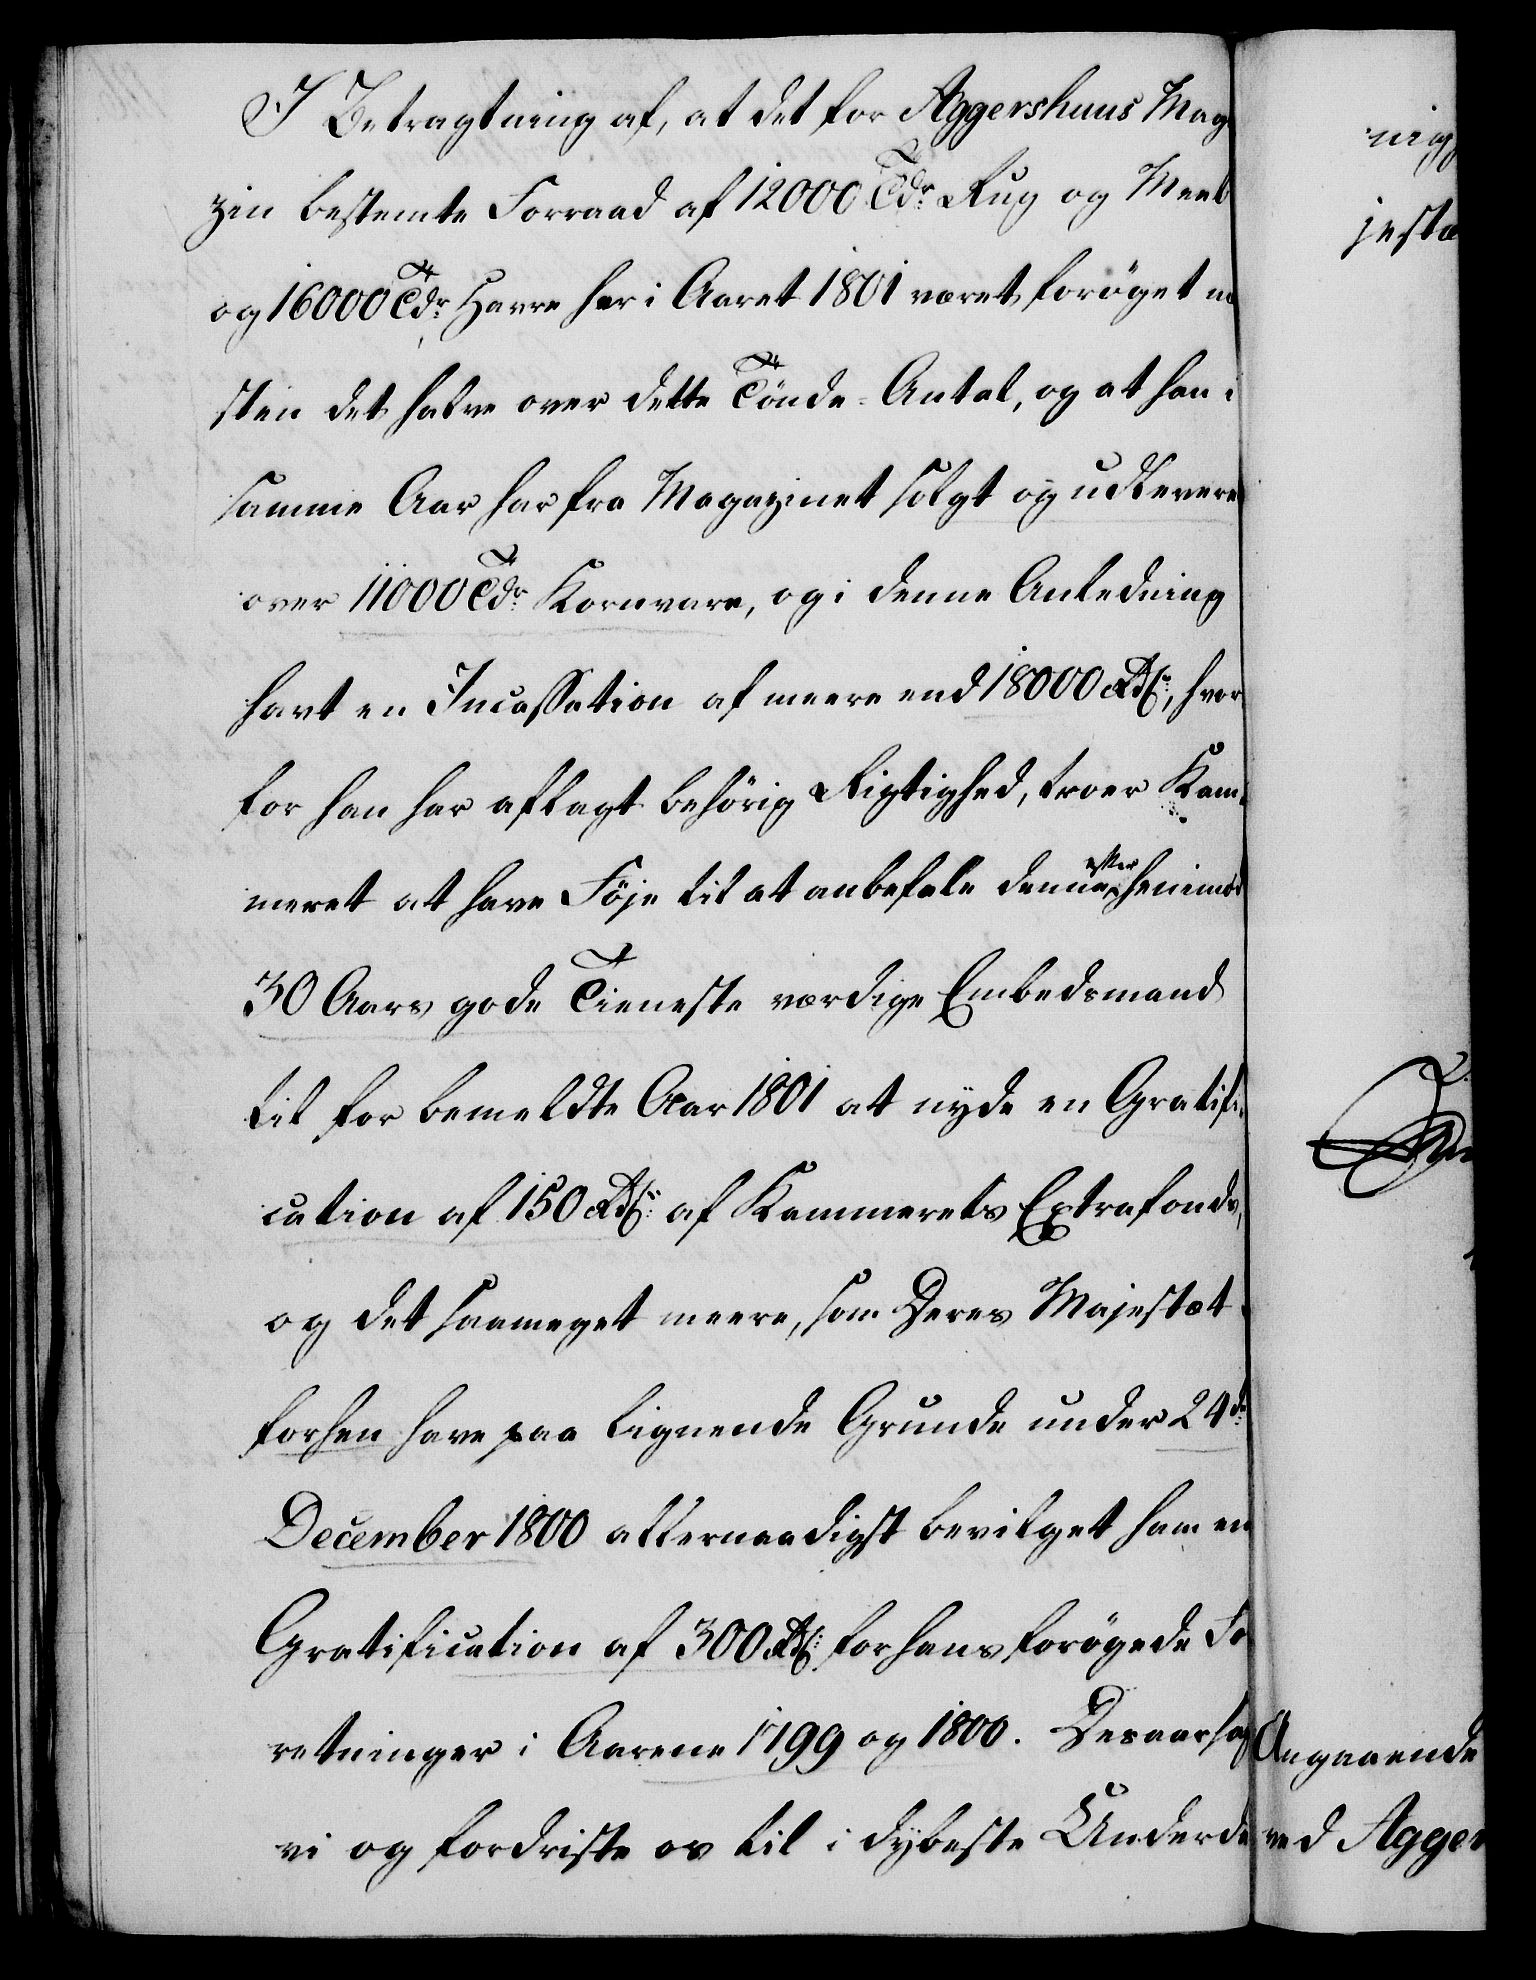 I Betragtning af, at det for Aggershuus Mag
zin bestemte Forraad af 12000 Tdr Rug og Meel
og 16000 Tdr Havre har i Aaret 1801 været forøget
sten det halve over dette Tønde-Antal, og at han i
samme Aar har fra Magazinet solgt og udlevere
over 11000 Tdr Kornvare, og i denne Anledning
havt en Incassation af meere end 18000 Rd, hvor
for han har aflagt behørig Rigtighed, troer Kam-
meret at have Føje til at anbefale denne efter henimod
30 Aars gode Tieneste værdige Embedsmand
til for bemeldte Aar 1801 at nyde en Gratifi-
cation af 150 Rd af Kammerets Extrafonds,
og det saameget meere, som Deres Majestæt
forhen have paa lignende Grunde under 24de
December 1800 allernaadigst bevilget ham en
Gratification af 300 Rd for hans forøgede Fo
retninger i Aarene 1799 og 1800. Desaarsag
vi og fordriste os til i dybeste Underda
jestæ
Angaaende
ved Agger